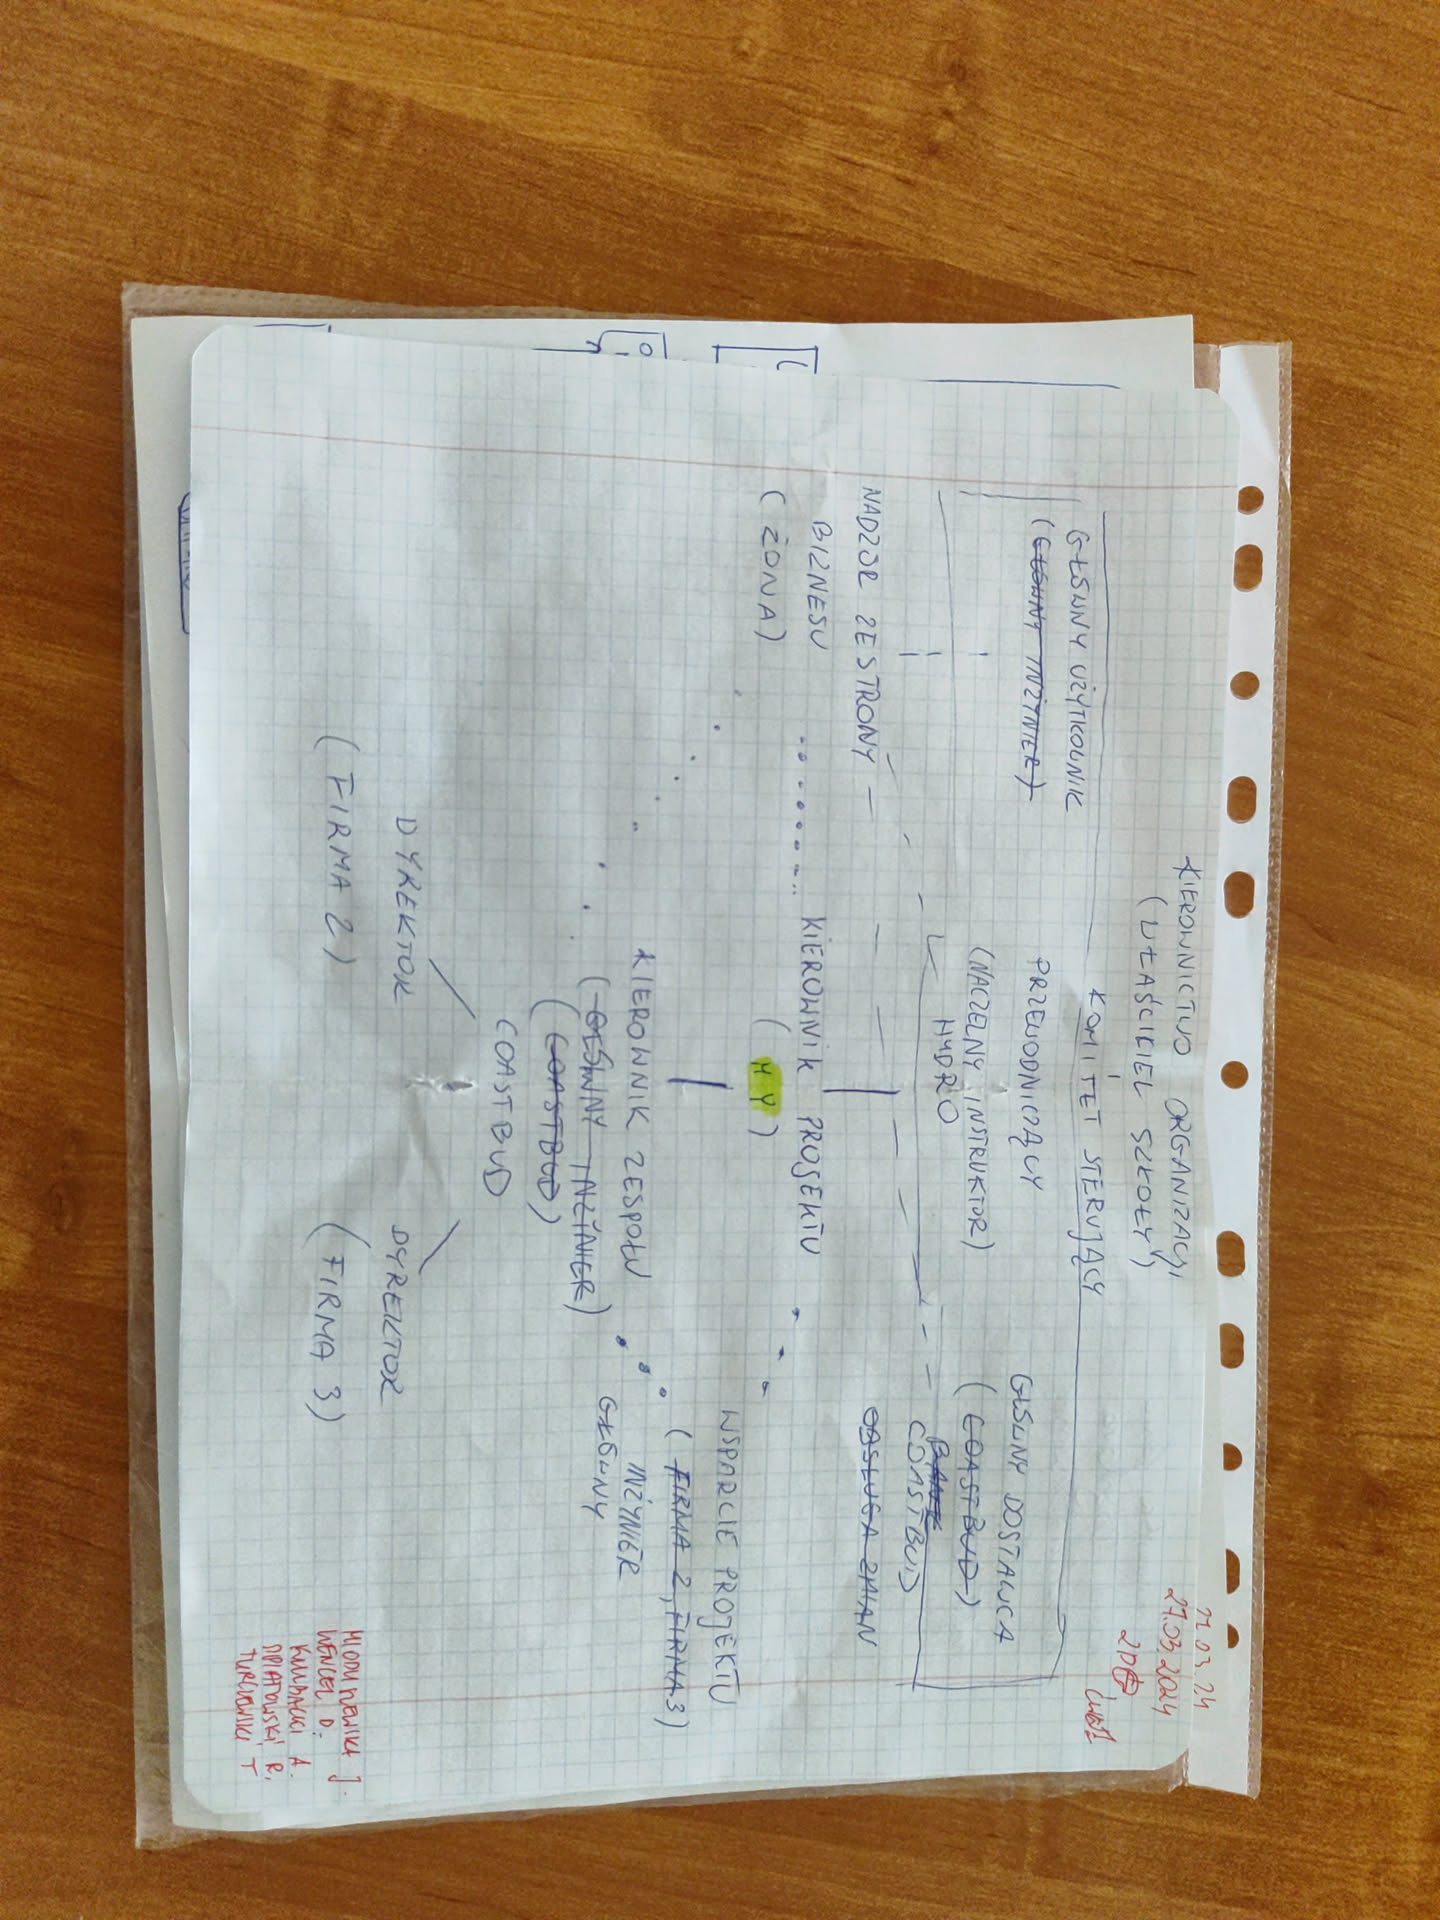 27.03.24
27.03.2024
KIEROWNICTWO ORGANIZACJI
(WŁAŚCICIEL SZKOŁY)
KOMITET STERUJĄCY
GŁÓWNY UŻYTKOWNIK
(GŁÓWNY INŻYNIER)
PRZEWODNICZĄCY
(NACZELNY INSTRUKTOR)
HYDRO
GŁÓWNY DOSTAWCA
(COASTBUD)
COASTBUD
OBSŁUGA ZMIAN
NADZÓR ZE STRONY
BIZNESU
(ŻONA)
KIEROWNIK PROJEKTU
(MY)
WSPARCIE PROJEKTU
(FIRMA 2, FIRMA 3)
INŻYNIER
GŁÓWNY
KIEROWNIK ZESPOŁU
(GŁÓWNY INŻINIER)
(COASTBUD)
COASTBUD
DYREKTOR
(FIRMA 2)
DYREKTOR
(FIRMA 3)
WENCEL D.
A.
R.
T